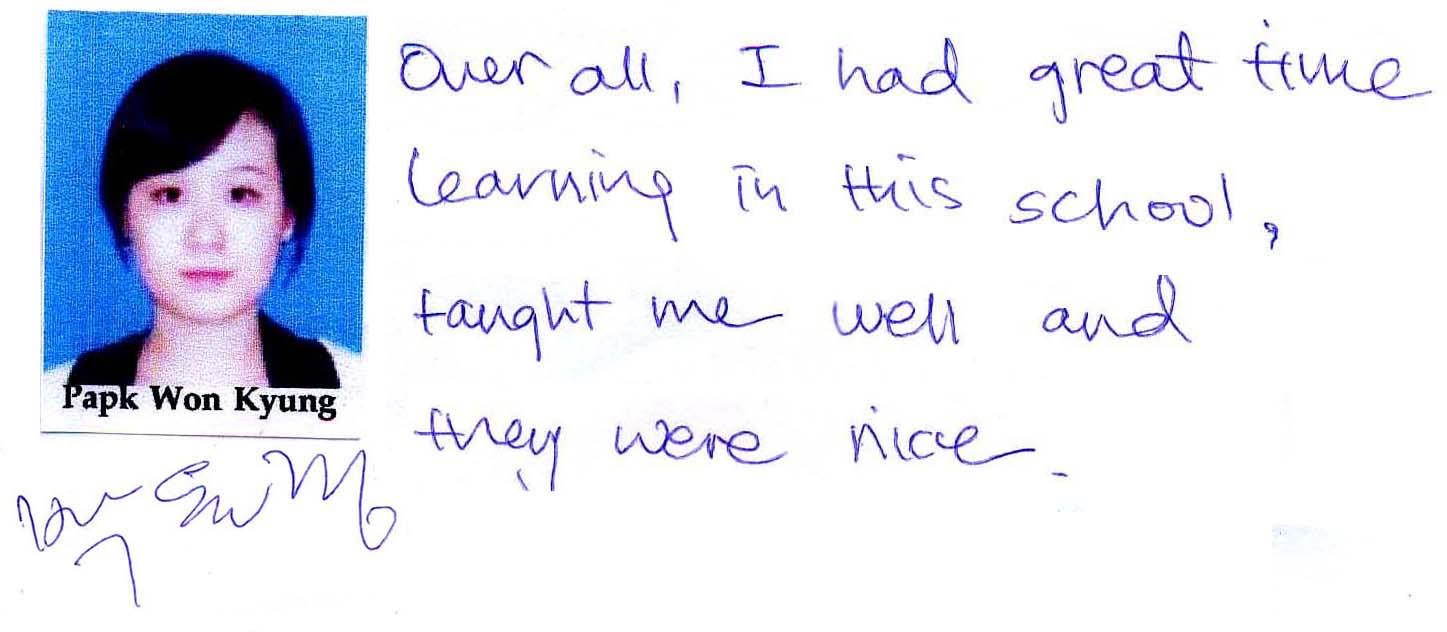 Over all, I had great time
learning in this school,
taught me well and
they were nice.
Papk Won Kyung